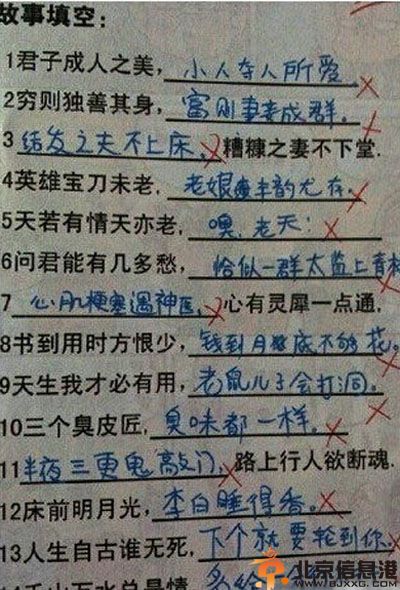 故事填空:
1君子成人之美,小人夺人所爱。
2穷则独善其身,富则妻妾成群。
3结发之夫不上床,糟糠之妻不下堂.
4英雄宝刀未老,老娘丰韵尤存。
5天若有情天亦老,噢,老天!
6问君能有几多愁,恰似一群太监上青
7心肌梗塞遇神医,心有灵犀一点通,
8书到用时方恨少,钱到月底不够花。
9天生我才必有用,老鼠儿子会打洞。
10三个臭皮匠,臭味都一样。
11半夜三更鬼敲门,路上行人欲断魂.
12床前明月光,李白睡得香。
13人生自古谁无死,下个就要轮到你.
北京信息港
WWW.BJXXG.COM